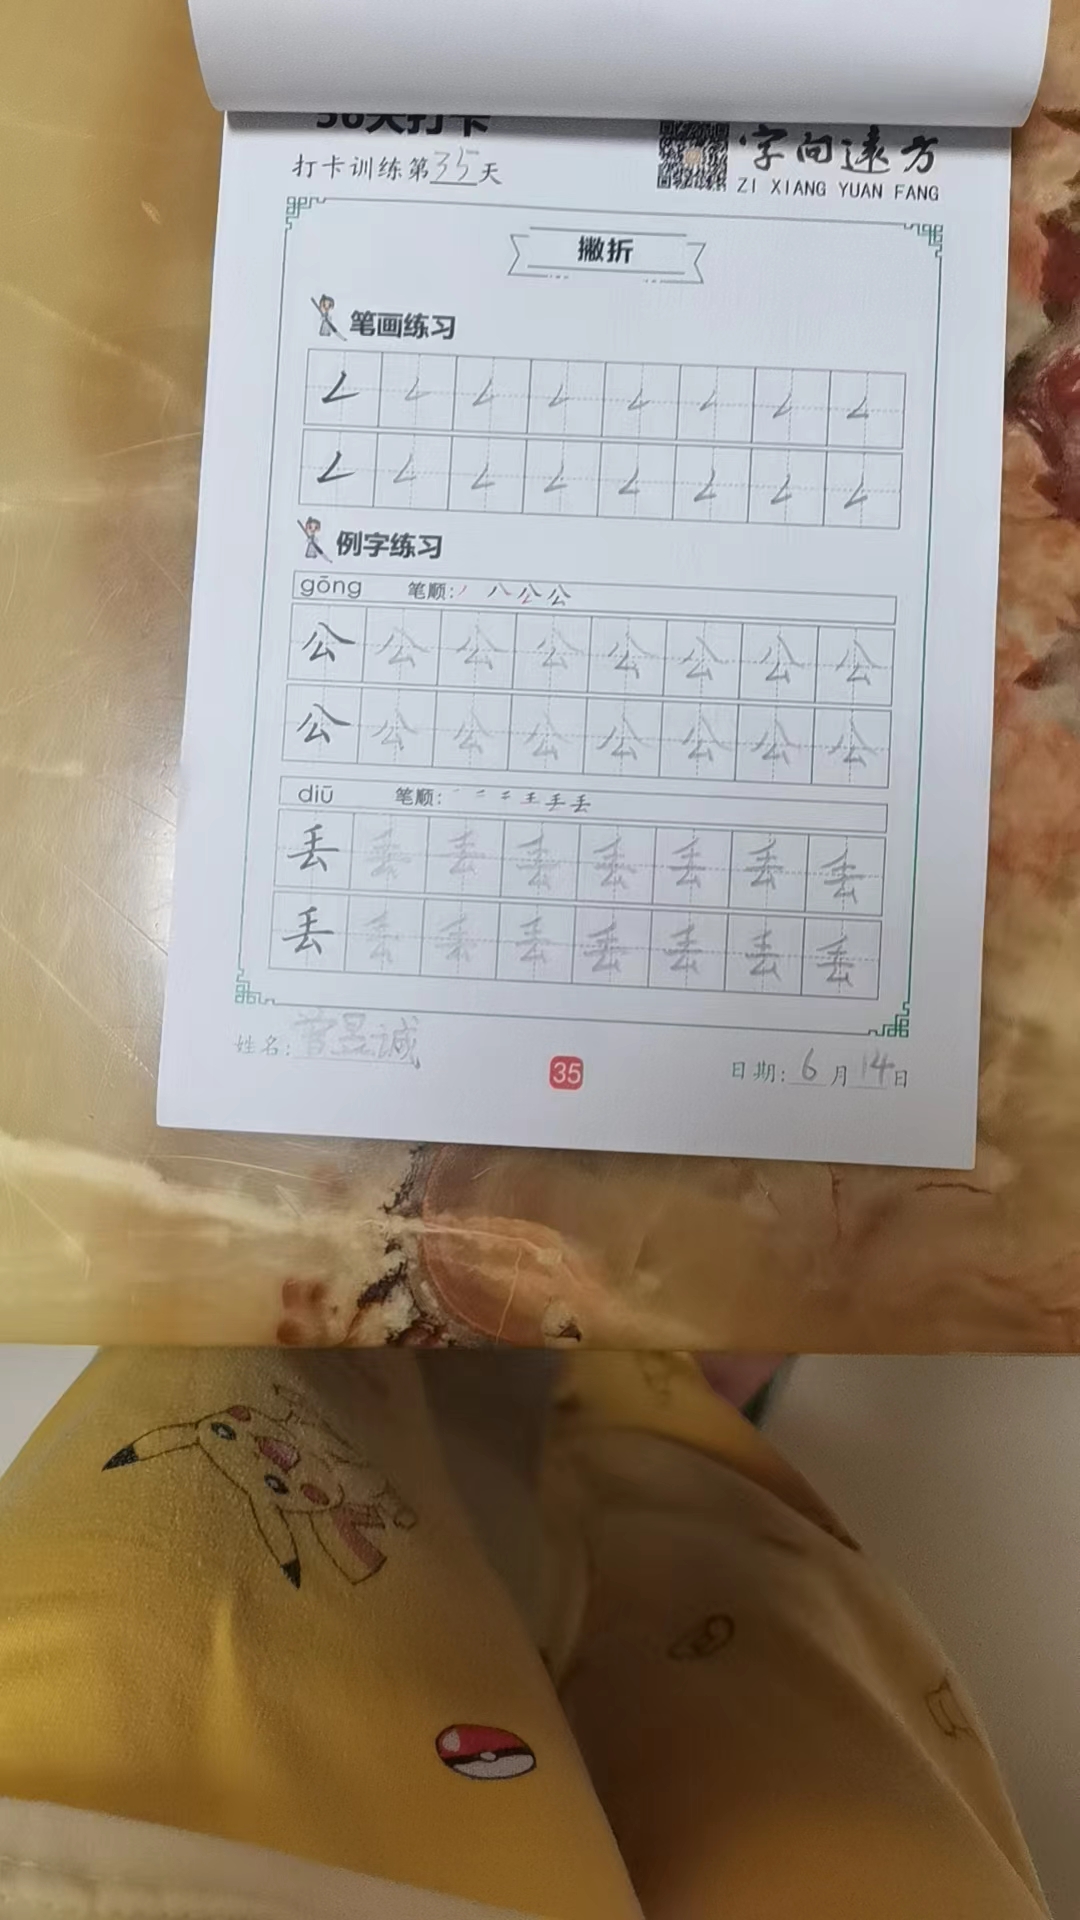 打卡训练第35天
字向远方
ZI XIANG YUAN FANG
撇折
笔画练习
例字练习
gōng 笔顺: 丿 八 公 公
公 公 公 公 公 公 公 公
公 公 公 公 公 公 公 公
diū 笔顺:
丢 丢 丢 丢 丢 丢 丢 丢
丢 丢 丢 丢 丢 丢 丢 丢
姓名: 曾昱诚
35
日期: 6月14日